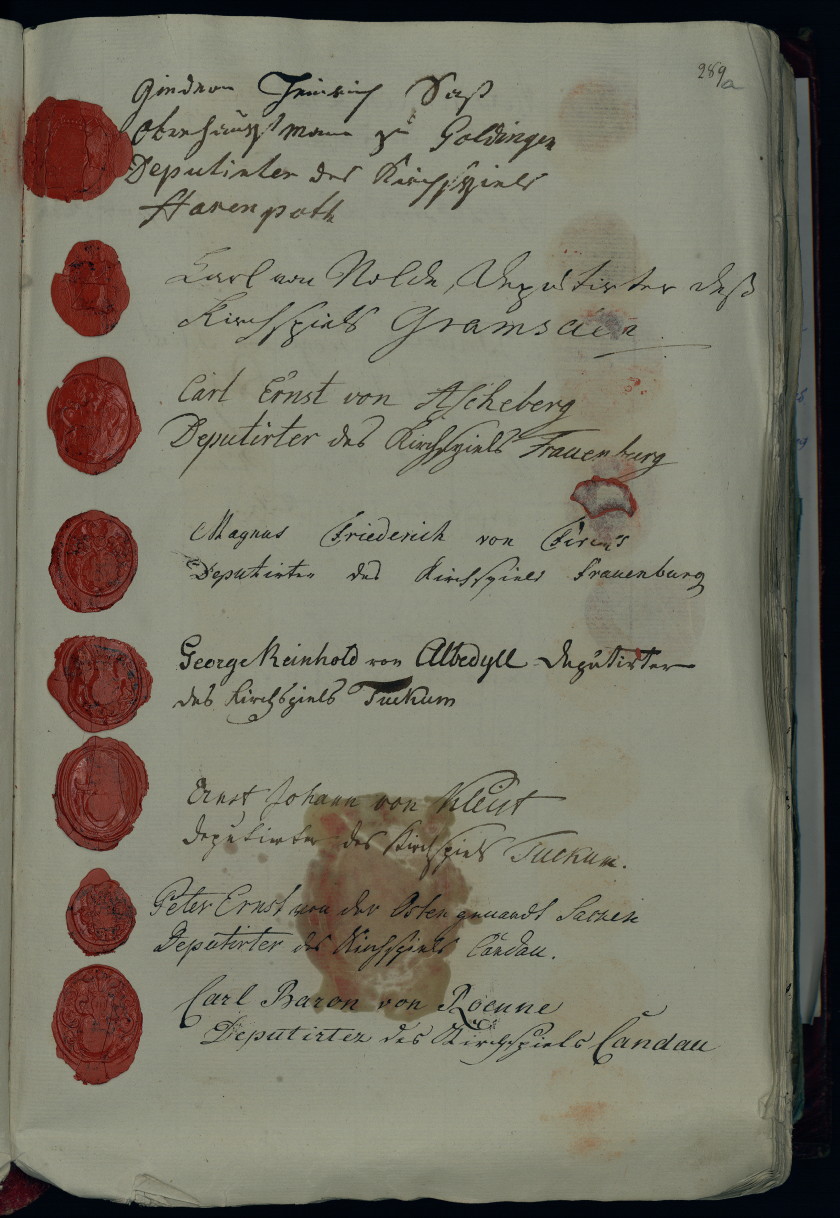 289a
Heinrich Saß
Oberhauptmann zu Goldingen
Deputirter des Kirchspiels
Hasenpoth
Carl von Nolde, Deputirter deß
Kirchspiels Gramsden
Carl Ernst von Ascheberg
Deputirter des Kirchspiels Frauenburg
Magnus Friederich von Fircks
Deputirter des Kirchspiels Frauenburg
George Reinhold von Albedyll Deputirter
des Kirchspiels Tuckum
Ernst Johann von Kleist
Deputirter des Kirchspiels Tuckum.
Peter Ernst von der Osten genandt Sacken
Deputirter des Kirchspiels Candau.
Carl Baron von Roenne
Deputirter des Kirchspiels Candau